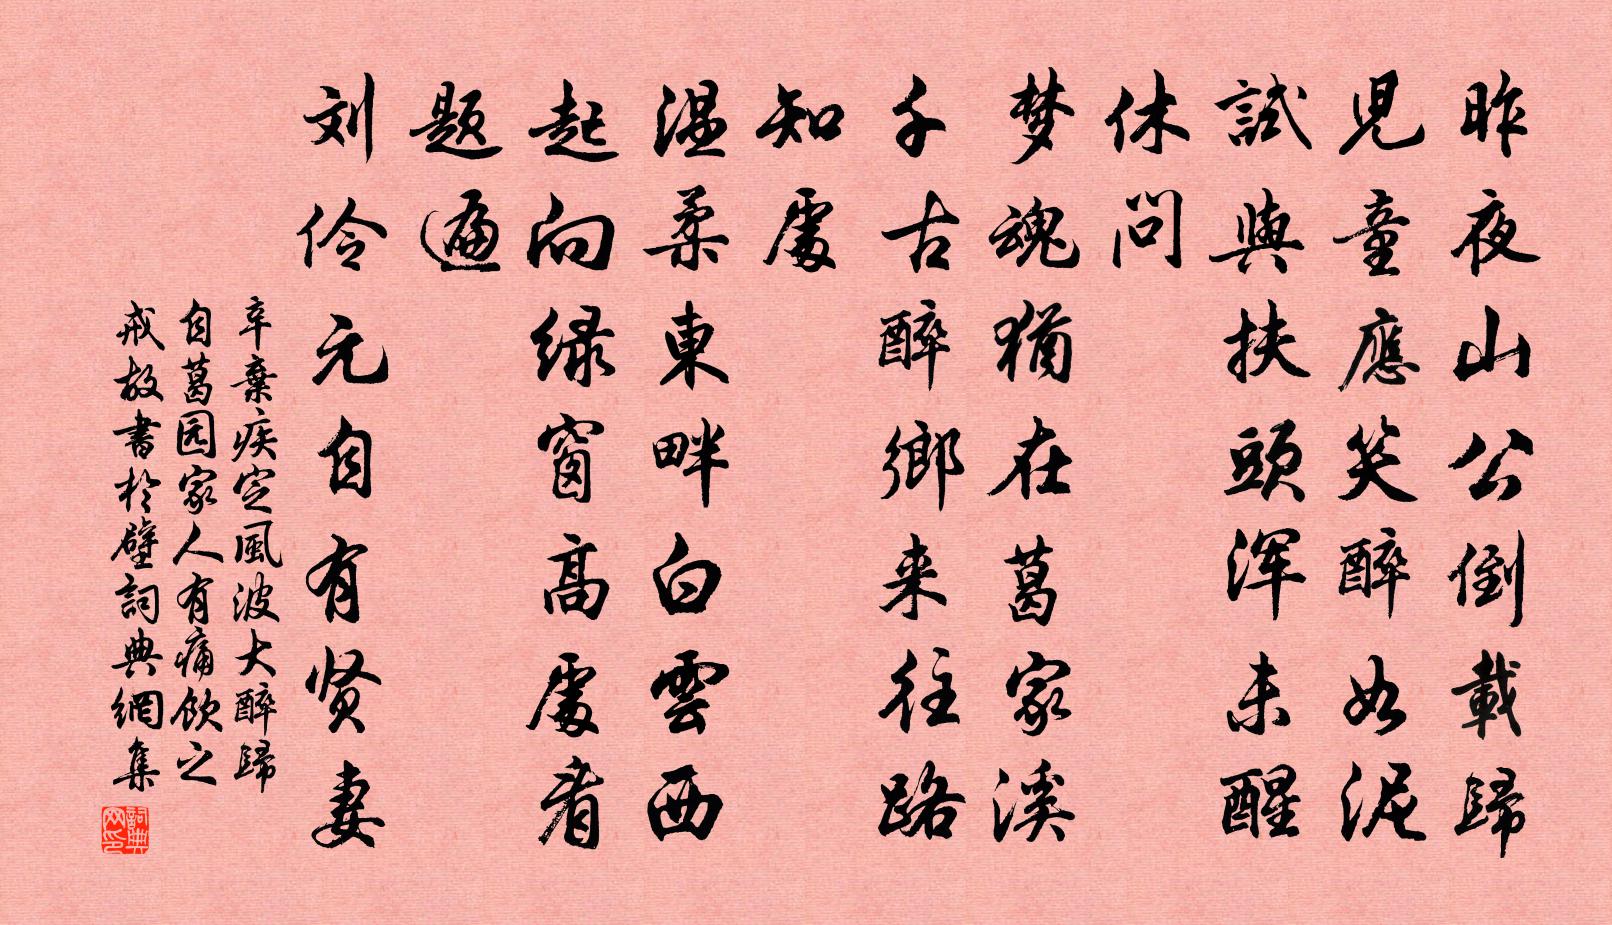 昨夜山公倒載歸
児童應笑醉如泥
試與扶頭渾未醒
休问
梦魂猶在葛家溪
千古醉鄉来往路
知處
温柔東畔白雲西
起向绿窗高處看
题遍
刘伶元自有贤妻
辛棄疾定風波大醉歸
自葛园家人有痛飲之
戒故書於壁詞典網集
詞典网印